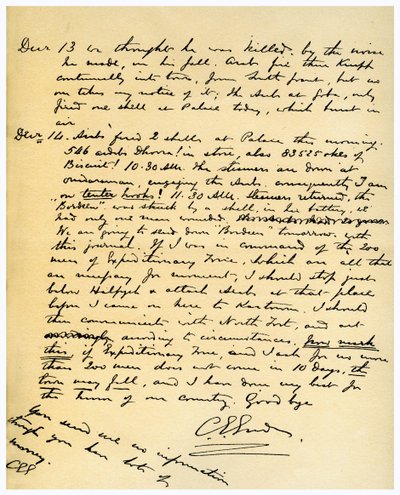 Decr 13 we thought he was killed by the noise
he made, in his fall. Arabs fire their Krupp
continually into town, from South front, but no
one takes any notice of it; The Arabs at Goba, only
fired one shell at Palace today, which burst in
air
Decr 14. Arabs fired 2 shells at Palace this morning.
546 ardebs Dhoora! in store, also 83525 okes of
Biscuit! 10.30 AM. The steamers are down at
Omdurman, engaging the Arabs, consequently I am
on tenter hooks! 11.30 AM, steamers returned, the
"Bordeen" was struck by a shell in her battery, we
had only one man wounded.
We are going to send down "Bordeen" tomorrow with
this journal. If I was in command of the 200
men of Expeditionary Force, which are all that
are necessary for moment, I should stop just
below Halfyeh & attack Arabs at that place
before I came on here to Kartoum. I should
then communicate with North Fort, and act
according to circumstances. Now mark
this, if Expeditionary Force, and I ask for no more
than 200 men does not come in 10 days, the
town may fall, and I have done my best for
the honor of our country. Good bye
C. G. Gordon
You send me no information
though you have lots of
money.
CGG